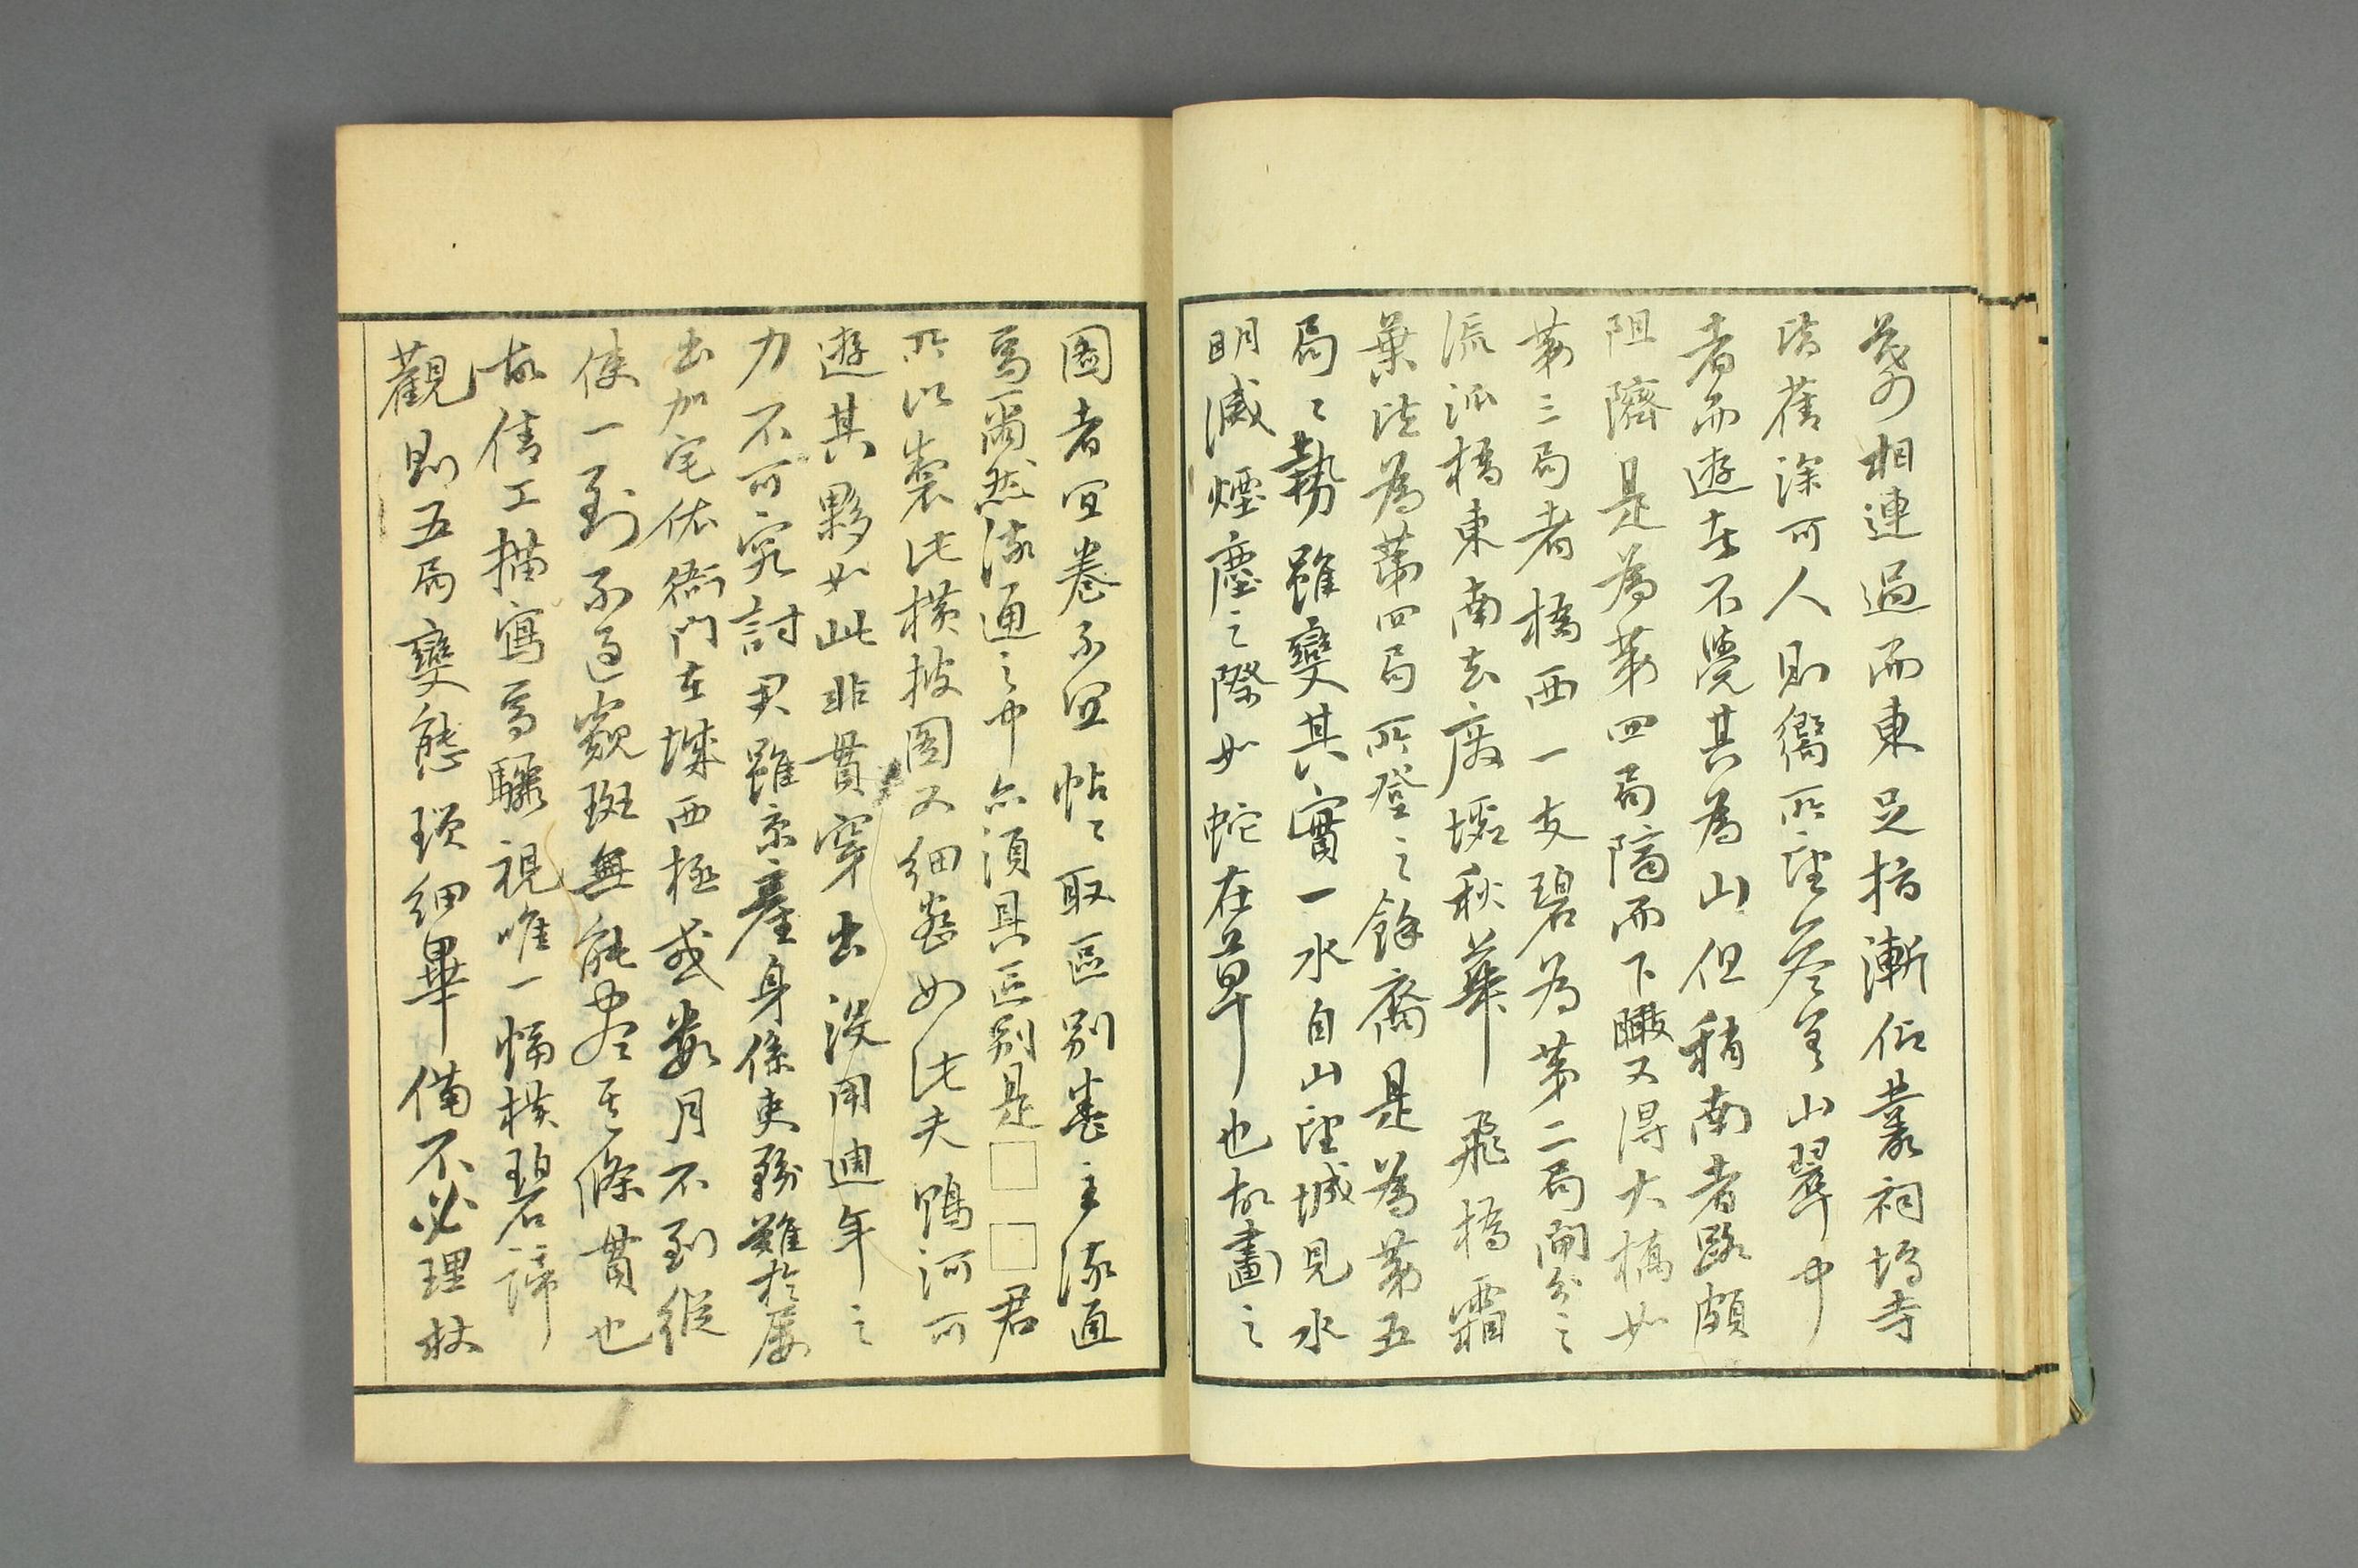 相連過而東足指漸仰叢祠塢寺
清舊深可人則嚮所望蒼蒼山翠中
者而遊在不覺其為山但稍南者路頗
阻隮是為第四局隔而下瞰又得大橋如
第三局者橋西一支碧為第二局開分之
流派橋東南去廢壖秋華飛橋霜
葉詭為第四局所登之餘裔是為第五
局〻勢雖變其實一水自山望城見水
明滅煙塵之際如蛇在草也故畫之
圖者宜卷不宜帖〻取區別卷主流通
焉爾然流通之中亦須具區別是□□君
所以裝此橫披圖又細密如此夫鴨河可
遊其夥如此非貫穿出沒用週年之
力不可究討君雖京產身係吏務難於屢
出加宅依衙門在城西極或數月不到縱
使一到不過窺斑無能盡其條貫也
故倩工描寫焉驟視唯一幅橫碧諦
觀則五局變態瑣細畢備不必理杖